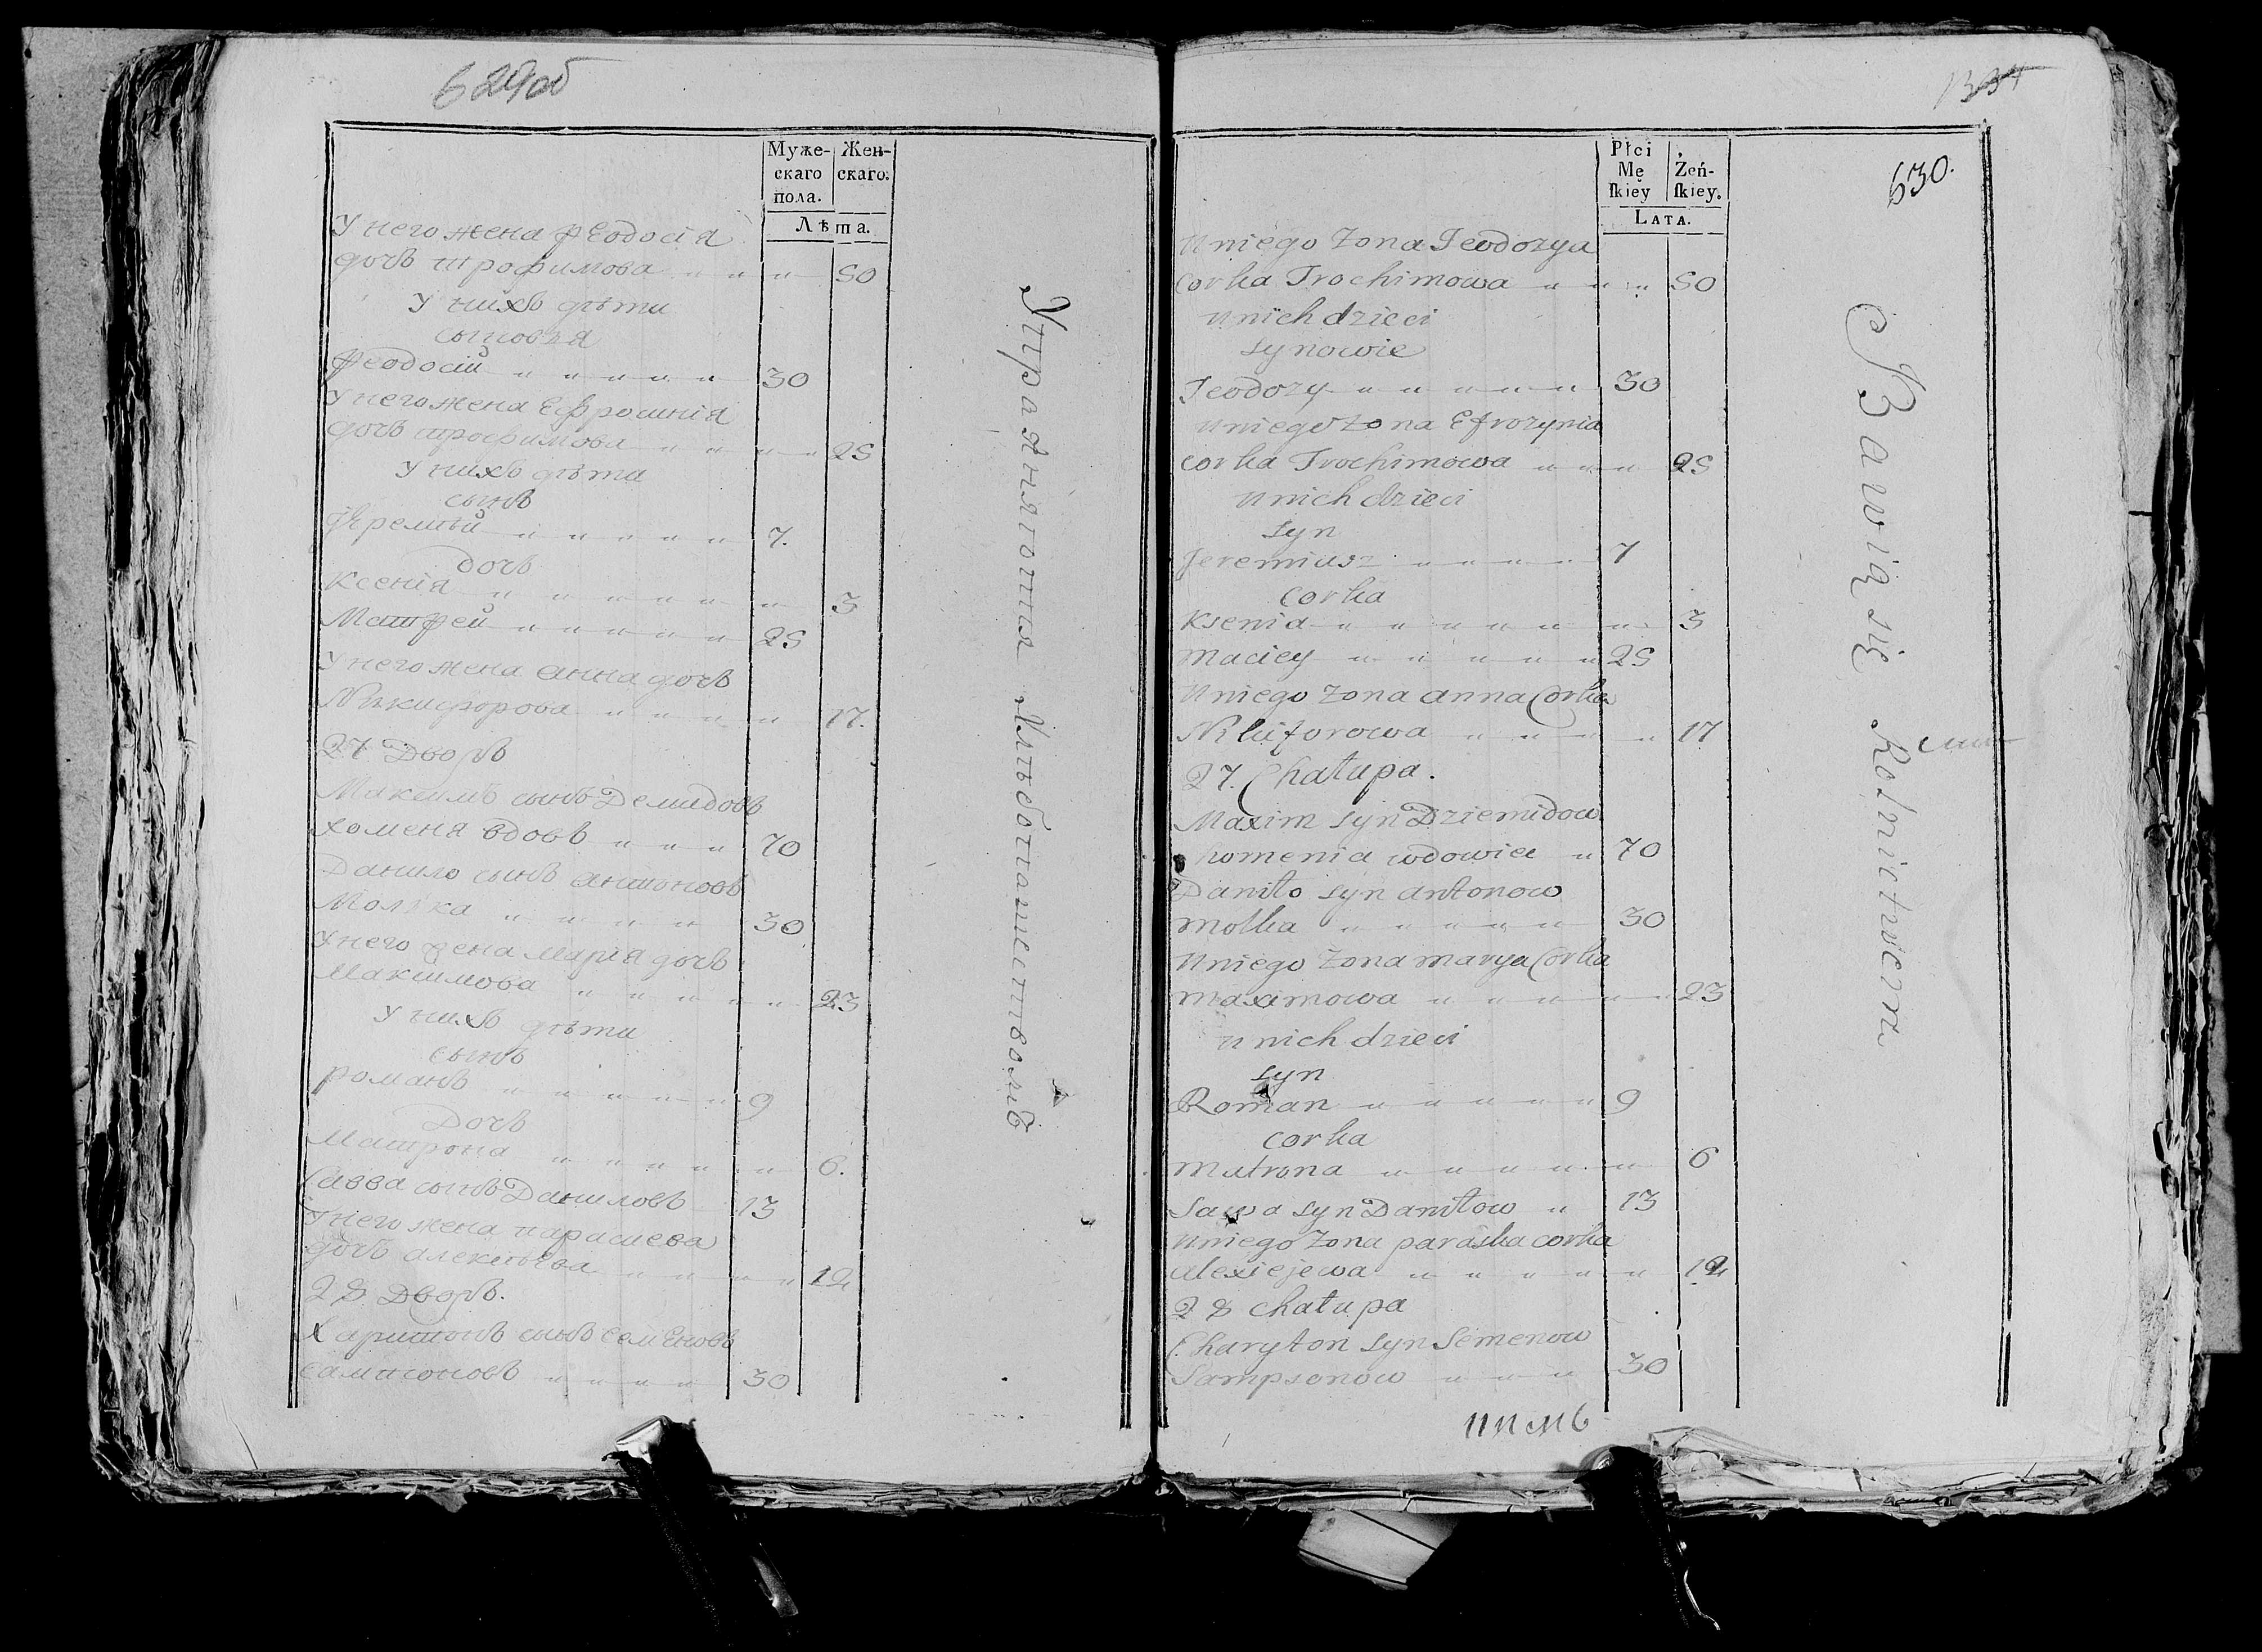 629об
Муже-
скаго
пола.
Жен-
скаго.
Лѣта.
У него жена Феодосія
дочь Трофимова 50
У нихъ дѣти
сыновья
Феодосій 30
У него жена Ефросинія
дочь Трофимова 25
У нихъ дѣти
сынъ
Іеремѣй 7.
Дочь
Ксенія 3
Матфей 25
У него жена Анна дочь
Никифорова 17.
27. Дворъ
Максимъ сынъ Демидовъ
Хоменя вдовъ 70
Данило сынъ Антоновъ
Молька 30
У него жена Марія дочь
Максимова 23
У нихъ дѣти
сынъ
Романъ 9
Дочь
Матрона 6.
Савва сынъ Даниловъ 13
У него жена Парасиева
дочь Алексѣева 12
28 Дворъ.
Харитонъ сынъ Семеновъ
Сампсоновъ 30
Упражняются хлѣбопашествомъ
630.
Płci
Mę
ſkieỳ
Żeń-
ſkiey.
LATA.
U niego Zona Teodozya
Corka Trochimowa 50
U nich dzieci
synowie
Teodozy 30
U niego zona Efrozynia
corka Trochimowa 25
U nich dzieci
syn
Jeremiusz 7
corka
Ksenia 3
Maciey 25
U niego Zona Anna Corka
Nikiforowa 17
27. Chałupa.
Maxim syn Dziemidow
Chomenia wdowiec 70
Daniło syn Antonow
Molka 30
U niego Zona Marya Corka
Maximowa 23
U nich dzieci
syn
Roman 9
corka
Matrona 6
Sawa syn Daniłow 13
U niego Zona Paraska corka
Alexiejewa 12
28 Chałupa
Charyton syn Semenow
Sampsonow 30
Bawią się Rolnictwem